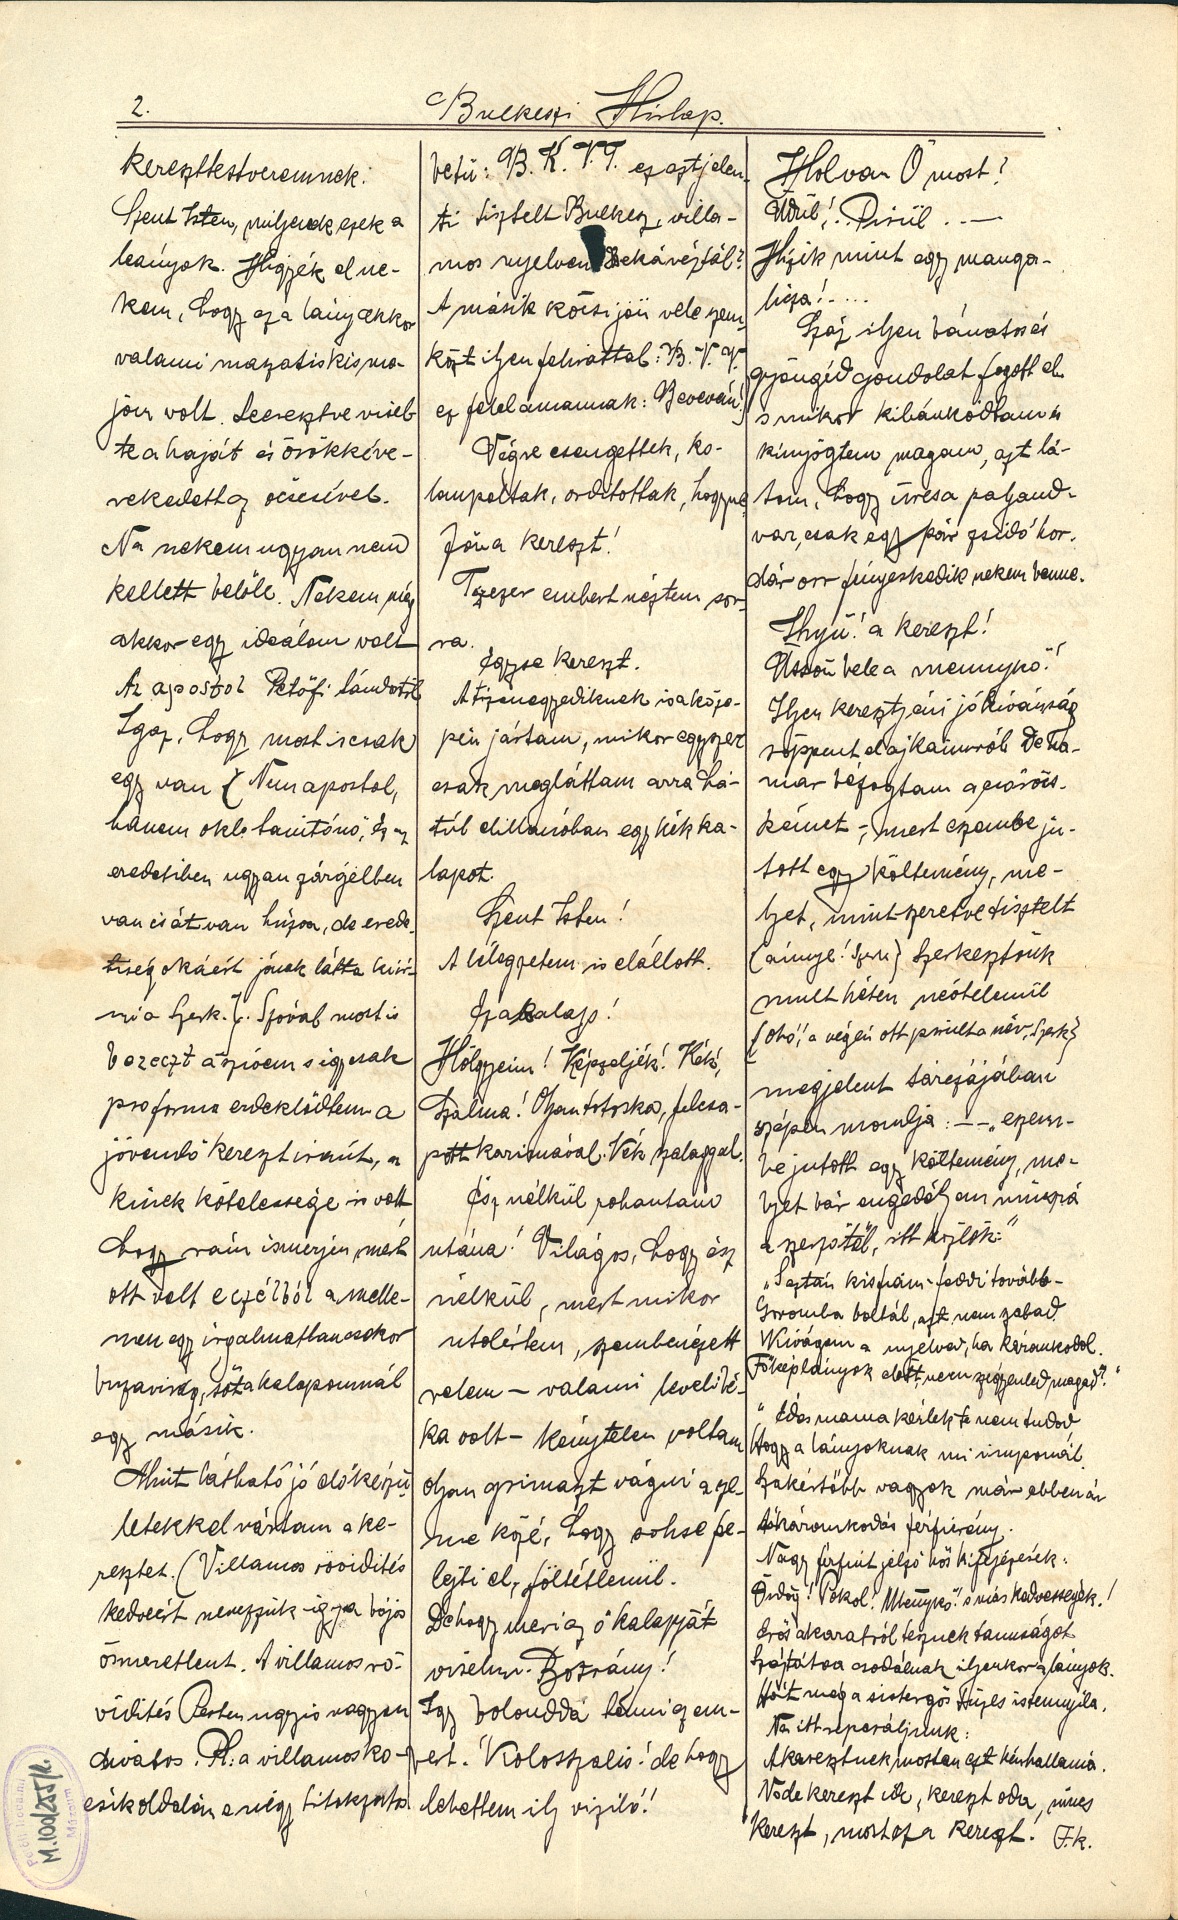 2.
Bulkeszi Hirlap.
kereszttestveremnek.
Szent Isten, milyenek ezek a
leányok. Higyjék el ne-
kem, hogy ez a lány akkor
valami mazatiskisma-
jom volt. Leeresztve visel-
te a haját és örökkéve-
rekedett az öcsésével.
Na nekem ugyan nem
kellett belőle. Nekem még
akkor egy ideálom volt
Az apostol Petőfi
Igaz, hogy most is csak
egy van (Nem apostol,
hanem okl. tanítónő, Ez az
eredetiben ugyan zárjelben
van és át van húzva, de erede-
tiség okáért jónak látta kiír-
ni a Szerk.). Szóval most is
a szivem s igy csak
pro forma erdeklődtem a
jövendő kereszt iránt, a
kinek kötelessége is volt
hogy rám ismerjen, mert
ott volt e czélból a melle-
men egy irgalmatlan csokor
buzavirág, sőt a kalapomnál
egy másik.
Amint látható jó előkészü
letekkel vártam a ke-
resztet. (Villamos rövidités
kedveért nevezzük igy a bájos
ösmeretlent. A villamos rö-
vidités Pesten ugyis nagyon
divatos. Pl: a villamos ko-
csik oldalán a négy titokzatos
betü: B. K. V. T. ez azt jelen-
ti tisztelt Bulkesz, villa-
mos nyelven Bekávéztál?
A másik kocsi jön vele szem-
közt ilyen felirattal: B. V. V.
ez felel amannak: Bevevén!)
Végre csengettek, ko-
lompoltak, ordítottak, hogy na
Jön a kereszt!
Tizezer embert néztem sor-
ra.
Egyse kereszt.
A tizenegyediknek is a köze-
pén jártam, mikor egyszer
csak megláttam arra há-
túl elillanóban egy kék ka-
lapot.
Szent Isten!
A lélegzetem is elállott.
Ez a kalap!
Hölgyeim! Képzeljék! Kék,
Szalma! Olyan totyska, felcsa-
pott karimával. Kék szalaggal.
Ész nélkül rohantam
utána! Világos, hogy ész
nélkül, mert mikor
utolértem, szembenézett
velem – valami levelibé-
ka volt – kénytelen voltam
olyan grimaszt vágni a sze-
me közé, hogy sohse fe-
lejti el, föltétlenül.
De hogy meri az ő kalapját
viselni. Botrány!
Igy bolonddá tenni az em-
bert. Kolosszalis! de hogy
lehettem ily viziló!!
Hol van Ő most?
Üdül! Pirül. . —
Hizik mint egy manga-
licza! . . . .
Száz ilyen bánatos és
gyöngéd gondolat fogott el
s mikor kibánkódtam és
kinyögtem magam, azt lá-
tom, hogy üres a pályaud-
var, csak egy pár zsidó hor-
dár orr fényeskedik nekem benne.
Ehyü! a kereszt!
Üssön bele a mennykő!
Ilyen keresztyéni jókívánság
röppent el ajkaimról. De ha-
mar béfogtam a
– mert eszembe ju-
tott egy költemény, me-
lyet, mint szeretve tisztelt
(ainye! Szerk) Szerkesztőnk
mult héten névtelenül
(ohó! a végén ott pirult a név, Szerk)
megjelent tárczájában
szépen mondja: — — „eszem-
be jutott egy költemény, me-
lyet bár engedélyem nincs rá
a szerzőtől, itt közlök:"
„Aztán kisfiam – feddi tovább –
Goromba voltál, azt nem szabad
Kivágom a nyelved, ha káromkodol.
Főkép lányok előtt, nem szégyenled magad?"
„Édes mama kérlek te nem tudod
Hogy a lányoknak mi imponál.
Szakértőbb vagyok már ebben ám
A káromkodás férfierény.
Nagy férfiut jelző hős kifejezések:
Ördög! Pokol! Mennykő! s más kedvességek!
Erős akaratról tesznek tanuságot
Száját sa csodálnak ilyenkor a lányok.
Hát még a sistergős tüzes istennyila.
Na itt reperáljunk:
A keresztnek mostan ezt kén hallania.
Node kereszt ide, kereszt oda, nincs
kereszt, most ez a kereszt. F. k.
M.100/255/2.